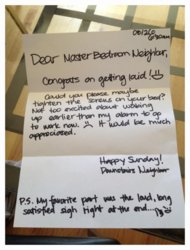 Dear Master Bedroom Neighbor,
Congrats on getting laid!
Could you please maybe
tighten the screws on your bed?
Not too excited about waking
up earlier than my alarm to go
to work now. It would be much
appreciated.
Happy Sunday!
Downstairs Neighbor
P.S. My favorite part was the loud, long
satisfied sigh right at the end...